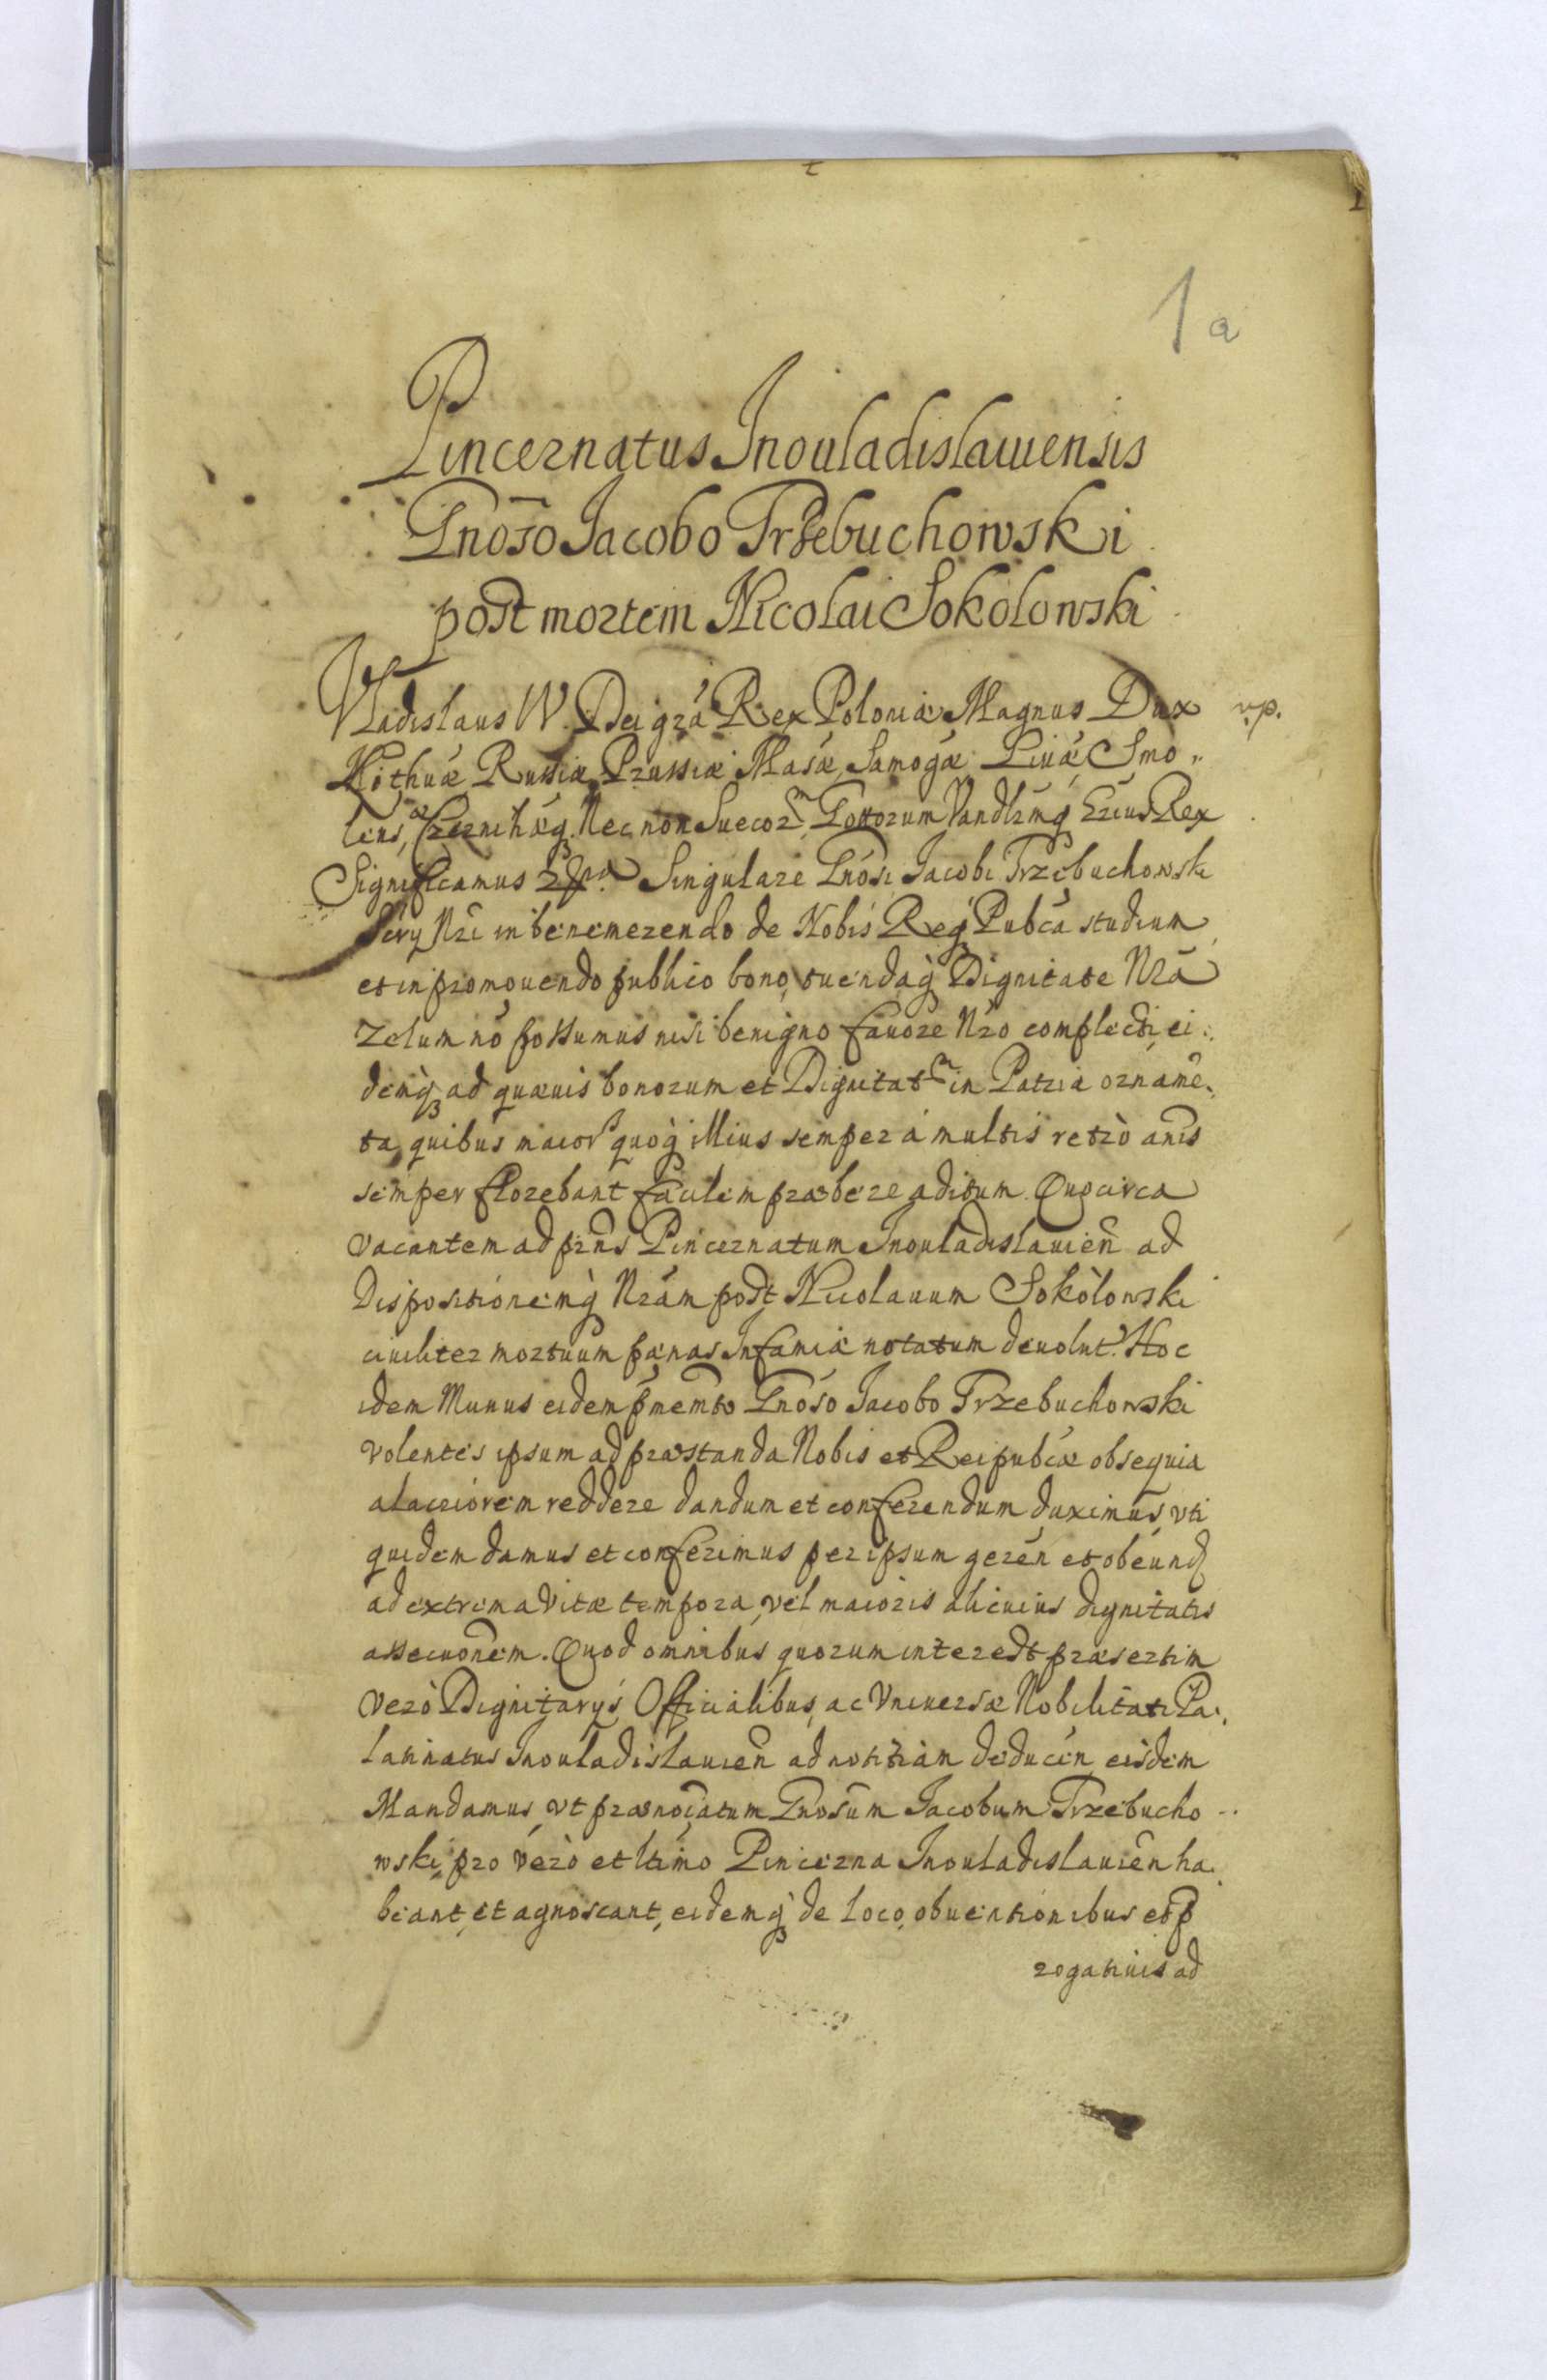 1
1a
Pincernatus Inouladislauiensis
Gnoso Jacobo Trzebuchowski
post mortem Nicolai Sokolowski
Vladislaus IV. Dei gra Rex Poloniæ Magnus Dux
Lithuæ Russiæ Prussiæ Masæ Samogæ Liuæ Smo„
lens, Czernihæq Nec non Suecor Gottorum Vandlrmq Ærius Rex
Significamus &c. Singulare Gnosi Jacobi Trzebuchowski
Nri in benemerendo de Nobis Reqꝫ Pubca studium
et in promouendo publico bono, tuendaq Dignitate Nra
Zelum no possumus nisi benigno fauore Nro complecti, ei„
demqꝫ ad quæuis bonorum et Dignitat in Patria orname„
ta, quibus maior quoq illius semper á multis retrò anis
semper florebant facilem præbere aditum. Quocirca
Vacantem ad prns Pincernatum Inouladislauien ad
Dispositionemq Nram post Nicolauum Sokolowski
ciuiliter mortuum pænas Infamiæ notatum deuolut. Hoc
idem Munus eidem pmemto Gnoso Jacobo Trzebuchowski
volentes ipsum ad præstanda Nobis et Reipubcæ obsequia
alacriorem reddere dandum et conferendum duximus, vti
quidem damus et conferimus per ipsum geren et obeund
ad extrema Vitæ tempora, vel maioris alicuius dignitatis
assecuonem. Quod omnibus quorum interest præsertim
Verò Dignitarys, Officialibus, ac Vniuersæ Nobilitati Pa„
latinatus Inouladislauien ad notitiam deducen eisdem
Mandamus, vt prænoiatum Gnosum Jacobum Trzebucho„
wski, pro verò et ltimo Pincerna Inouladislauien ha„
beant, et agnoscant, eidemqꝫ de loco, obuentionibus et p
rogatiuis ad